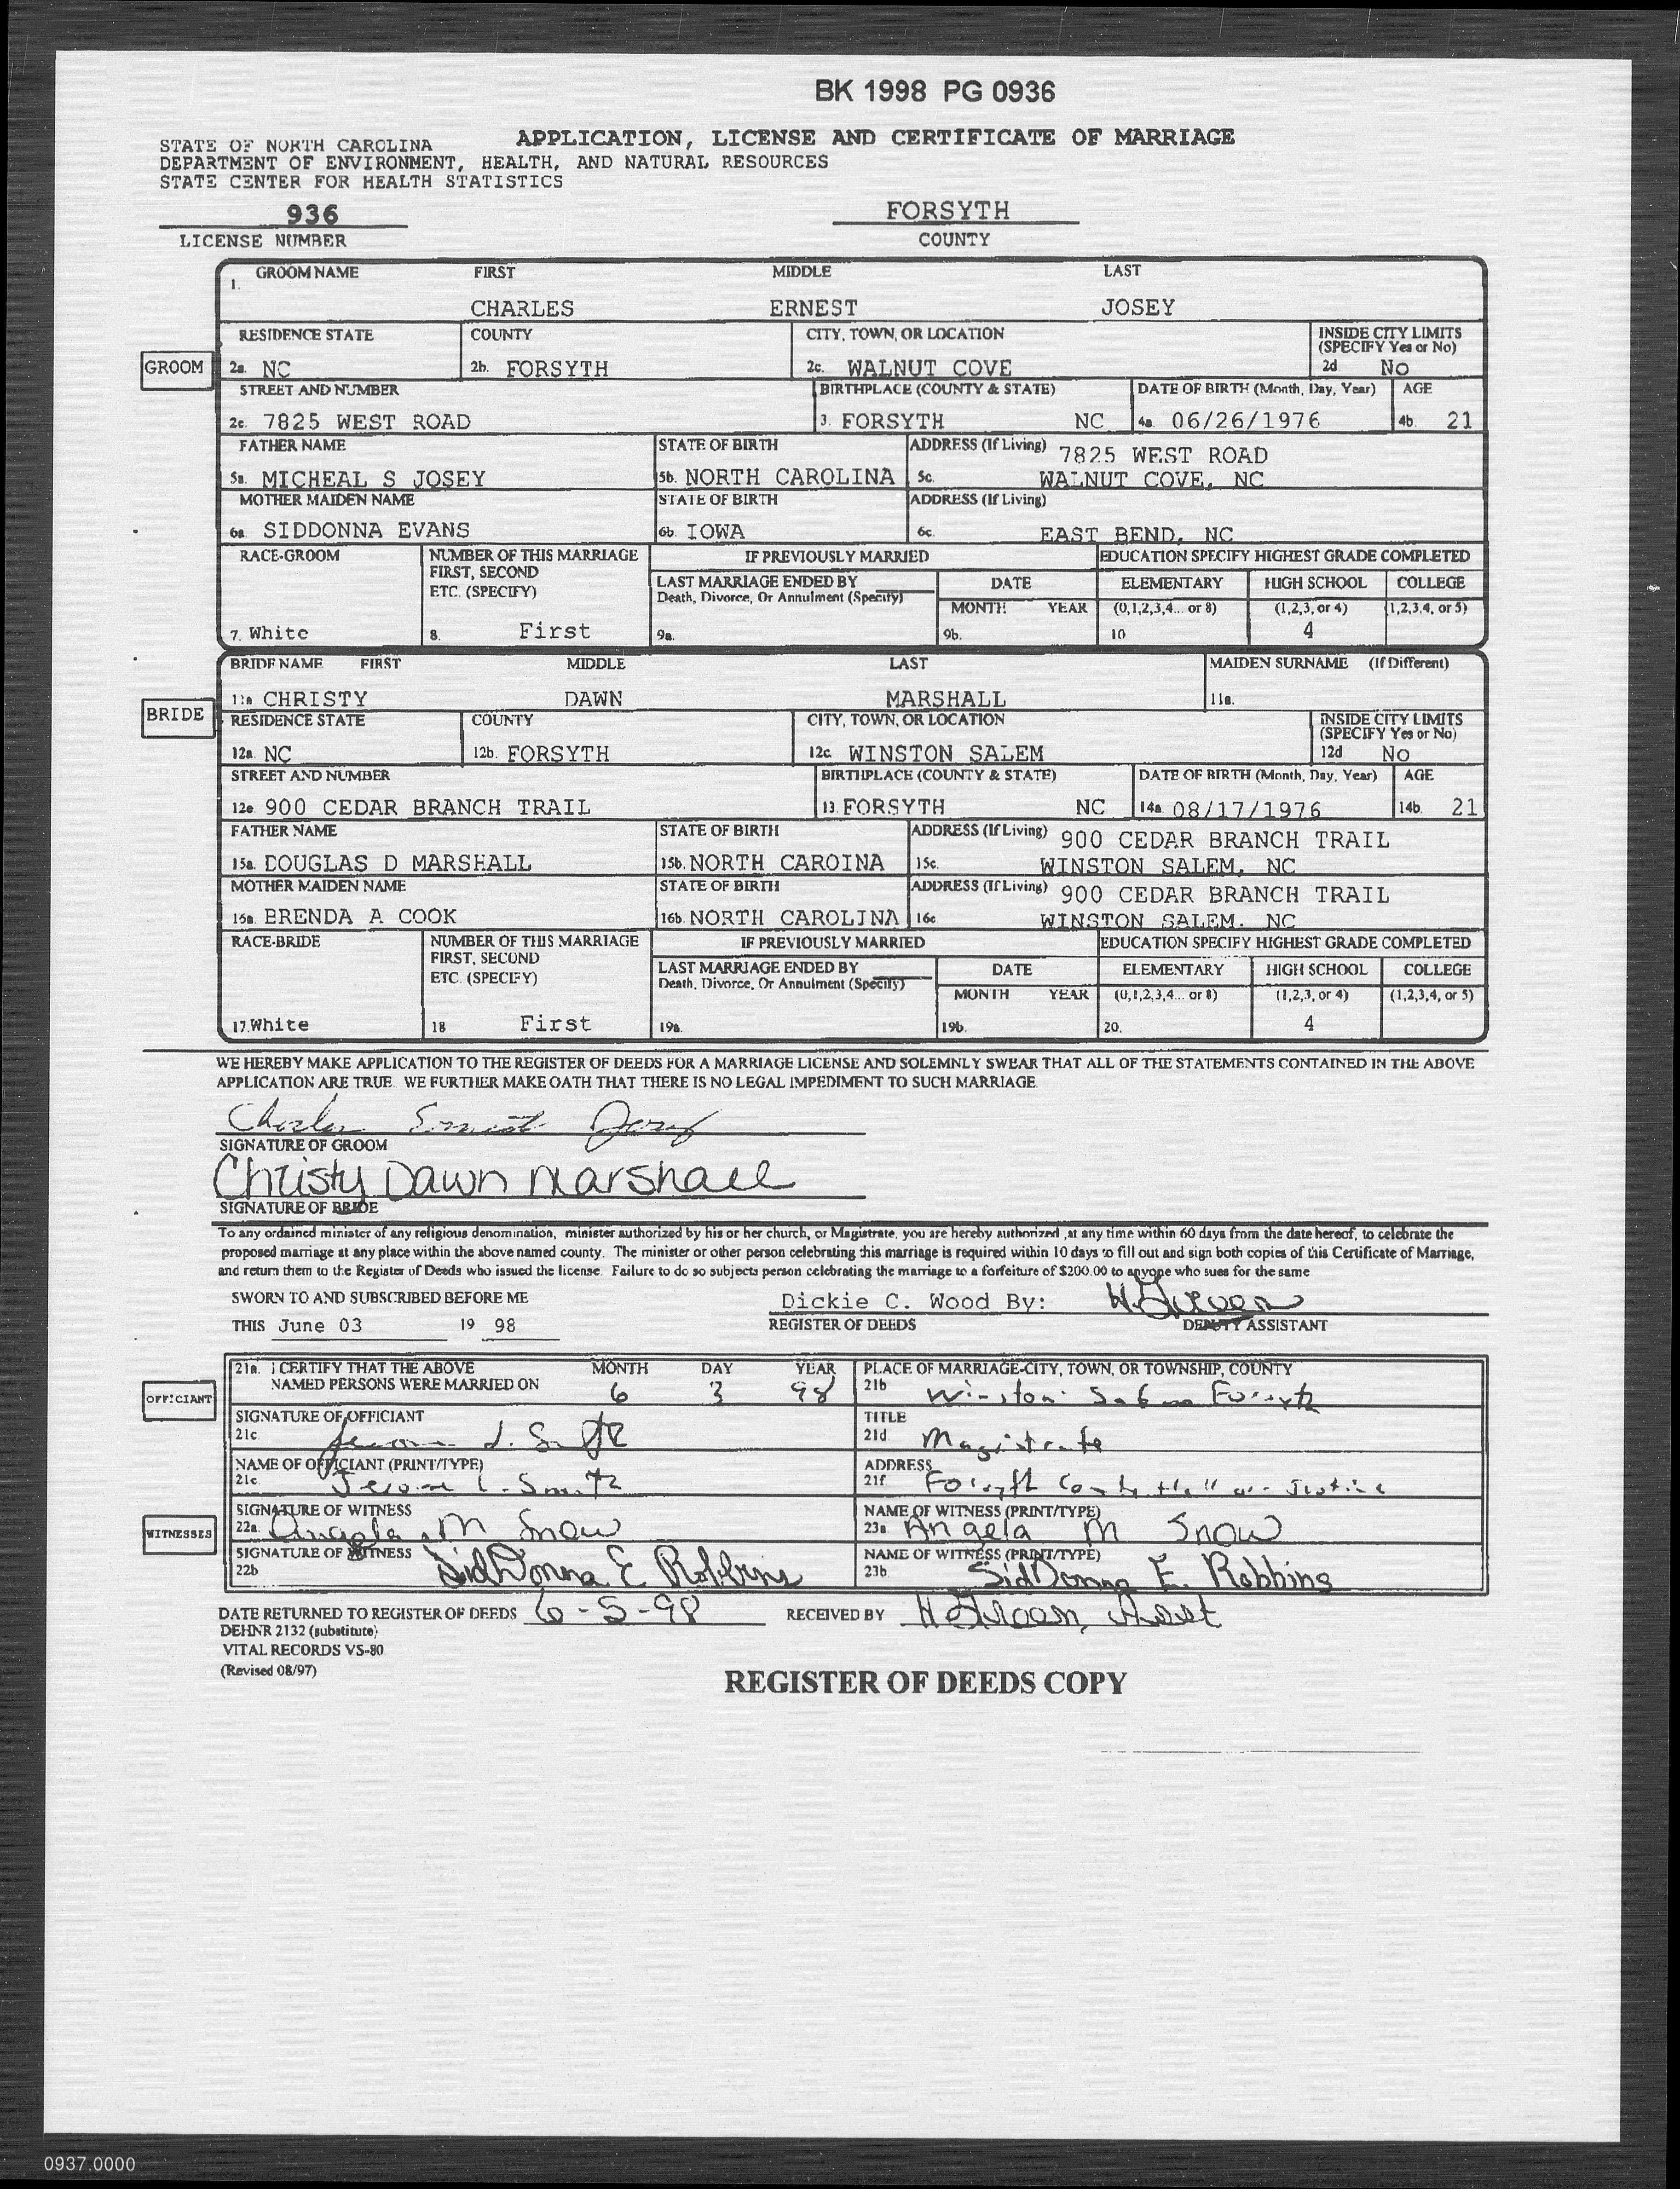 BK 1998 PG 0936
APPLICATION, LICENSE AND CERTIFICATE OF MARRIAGE
STATE OF NORTH CAROLINA
DEPARTMENT OF ENVIRONMENT, HEALTH, AND NATURAL RESOURCES
STATE CENTER FOR HEALTH STATISTICS
936 FORSYTH
LICENSE NUMBER COUNTY
1. GROOM NAME FIRST MIDDLE LAST
CHARLES ERNEST JOSEY
RESIDENCE STATE COUNTY CITY, TOWN, OR LOCATION INSIDE CITY LIMITS (SPECIFY Yes or No)
GROOM 2a. NC 2b. FORSYTH 2c. WALNUT COVE 2d No
STREET AND NUMBER BIRTHPLACE (COUNTY & STATE) DATE OF BIRTH (Month, Day, Year) AGE
2e. 7825 WEST ROAD 3. FORSYTH NC 4a. 06/26/1976 4b. 21
FATHER NAME STATE OF BIRTH ADDRESS (If Living) 7825 WEST ROAD
5a. MICHEAL S JOSEY 5b. NORTH CAROLINA 5c. WALNUT COVE, NC
MOTHER MAIDEN NAME STATE OF BIRTH ADDRESS (If Living)
6a SIDDONNA EVANS 6b. IOWA 6c. EAST BEND, NC
RACE-GROOM NUMBER OF THIS MARRIAGE IF PREVIOUSLY MARRIED EDUCATION SPECIFY HIGHEST GRADE COMPLETED
FIRST, SECOND ETC. (SPECIFY) LAST MARRIAGE ENDED BY Death, Divorce, Or Annulment (Specify) DATE ELEMENTARY HIGH SCHOOL COLLEGE
MONTH YEAR (0,1,2,3,4... or 8) (1,2,3, or 4) (1,2,3,4, or 5)
7. White 8. First 9a. 9b. 10 4
BRIDE NAME FIRST MIDDLE LAST MAIDEN SURNAME (If Different)
11a CHRISTY DAWN MARSHALL 11a.
BRIDE RESIDENCE STATE COUNTY CITY, TOWN, OR LOCATION INSIDE CITY LIMITS (SPECIFY Yes or No)
12a. NC 12b. FORSYTH 12c. WINSTON SALEM 12d No
STREET AND NUMBER BIRTHPLACE (COUNTY & STATE) DATE OF BIRTH (Month, Day, Year) AGE
12e. 900 CEDAR BRANCH TRAIL 13. FORSYTH NC 14a. 08/17/1976 14b. 21
FATHER NAME STATE OF BIRTH ADDRESS (If Living) 900 CEDAR BRANCH TRAIL
15a. DOUGLAS D MARSHALL 15b. NORTH CAROINA 15c. WINSTON SALEM, NC
MOTHER MAIDEN NAME STATE OF BIRTH ADDRESS (If Living) 900 CEDAR BRANCH TRAIL
16a. BRENDA A COOK 16b. NORTH CAROLINA 16c WINSTON SALEM, NC
RACE-BRIDE NUMBER OF THIS MARRIAGE IF PREVIOUSLY MARRIED EDUCATION SPECIFY HIGHEST GRADE COMPLETED
FIRST, SECOND ETC. (SPECIFY) LAST MARRIAGE ENDED BY Death, Divorce, Or Annulment (Specify) DATE ELEMENTARY HIGH SCHOOL COLLEGE
MONTH YEAR (0,1,2,3,4... or 8) (1,2,3, or 4) (1,2,3,4, or 5)
17. White 18 First 19a. 19b. 20. 4
WE HEREBY MAKE APPLICATION TO THE REGISTER OF DEEDS FOR A MARRIAGE LICENSE AND SOLEMNLY SWEAR THAT ALL OF THE STATEMENTS CONTAINED IN THE ABOVE
APPLICATION ARE TRUE. WE FURTHER MAKE OATH THAT THERE IS NO LEGAL IMPEDIMENT TO SUCH MARRIAGE.
Charles Ernest Josey
SIGNATURE OF GROOM
Christy Dawn Marshall
SIGNATURE OF BRIDE
To any ordained minister of any religious denomination, minister authorized by his or her church, or Magistrate, you are hereby authorized ,at any time within 60 days from the date hereof, to celebrate the
proposed marriage at any place within the above named county. The minister or other person celebrating this marriage is required within 10 days to fill out and sign both copies of this Certificate of Marriage,
and return them to the Register of Deeds who issued the license. Failure to do so subjects person celebrating the marriage to a forfeiture of $200.00 to anyone who sues for the same
SWORN TO AND SUBSCRIBED BEFORE ME Dickie C. Wood By:
THIS June 03 19 98 REGISTER OF DEEDS DEPUTY ASSISTANT
21a. I CERTIFY THAT THE ABOVE MONTH DAY YEAR PLACE OF MARRIAGE-CITY, TOWN, OR TOWNSHIP, COUNTY
OFFICIANT NAMED PERSONS WERE MARRIED ON 6 3 98 21b Winston Salem Forsyth
SIGNATURE OF OFFICIANT TITLE
21c Jerome L. Smith 21d Magistrate
NAME OF OFFICIANT (PRINT/TYPE) ADDRESS
21e. Jerome L. Smith 21f Forsyth County Hall of Justice
SIGNATURE OF WITNESS NAME OF WITNESS (PRINT/TYPE)
WITNESSES 22a. Angela M Snow 23a Angela M Snow
SIGNATURE OF WITNESS NAME OF WITNESS (PRINT/TYPE)
22b SidDonna E Robbins 23b. SidDonna E. Robbins
DATE RETURNED TO REGISTER OF DEEDS 6-5-98 RECEIVED BY Asst
DEHNR 2132 (substitute)
VITAL RECORDS VS-80
(Revised 08/97)
REGISTER OF DEEDS COPY
0937.0000